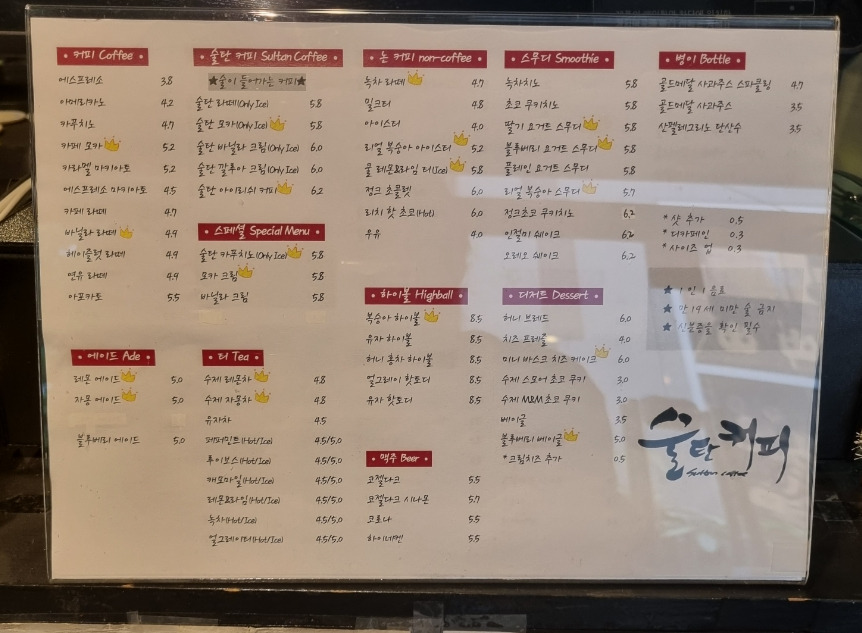 커피 Coffee
에스프레소 3.8
아메리카노 4.2
카푸치노 4.7
카페 모카 5.2
카라멜 마키아토 5.2
에스프레소 마키아토 4.5
카페 라떼 4.7
바닐라 라떼 4.9
헤이즐럿 라떼 4.9
연유 라떼 4.9
아포카토 5.5
에이드 Ade
레몬 에이드 5.0
자몽 에이드 5.0
블루베리 에이드 5.0
술탄 커피 Sultan Coffee
★술이 들어가는 커피★
술탄 라떼(Only Ice) 5.8
술탄 모카(Only Ice) 5.8
술탄 바닐라 크림(Only Ice) 6.0
술탄 깔루아 크림(Only Ice) 6.0
술탄 아이리쉬 커피 6.2
스페셜 Special Menu
술탄 카푸치노(Only Ice) 5.8
모카 크림 5.8
바닐라 크림 5.8
티 Tea
수제 레몬차 4.8
수제 자몽차 4.8
유자차 4.5
페퍼민트(Hot/Ice) 4.5/5.0
루이보스(Hot/Ice) 4.5/5.0
캐모마일(Hot/Ice) 4.5/5.0
레몬&라임(Hot/Ice) 4.5/5.0
녹차(Hot/Ice) 4.5/5.0
얼그레이티(Hot/Ice) 4.5/5.0
논 커피 non-coffee
녹차 라떼 4.7
밀크티 4.8
아이스티 4.0
리얼 복숭아 아이스티 5.2
쿨 레몬&라임 티(Ice) 5.8
정크 초콜렛 6.0
리치 핫 초코(Hot) 6.0
우유 4.0
하이볼 Highball
복숭아 하이볼 8.5
유자 하이볼 8.5
허니 홍차 하이볼 8.5
얼그레이 핫토디 8.5
유자 핫토디 8.5
맥주 Beer
코젤다크 5.5
코젤다크 시나몬 5.7
코로나 5.5
하이네켄 5.5
스무디 Smoothie
녹차치노 5.8
초코 쿠키치노 5.8
딸기 요거트 스무디 5.8
블루베리 요거트 스무디 5.8
플레인 요거트 스무디 5.8
리얼 복숭아 스무디 5.7
정크초코 쿠키치노 6.2
인절미 쉐이크 6.2
오레오 쉐이크 6.2
디저트 Dessert
허니 브레드 6.0
치즈 프레즐 4.0
미니 바스크 치즈 케이크 6.0
수제 스모어 초코 쿠키 3.0
수제 M&M 초코 쿠키 3.0
베이글 3.5
블루베리 베이글 5.0
* 크림치즈 추가 0.5
병이 Bottle
골드메달 사과주스 스파클링 4.7
골드메달 사과주스 3.5
산펠레그리노 탄산수 3.5
* 샷 추가 0.5
* 디카페인 0.3
* 사이즈 업 0.3
★ 1 인 1 음료
★ 만 19세 미만 술 금지
★ 신분증을 확인 필수
술탄커피
Sultan coffee